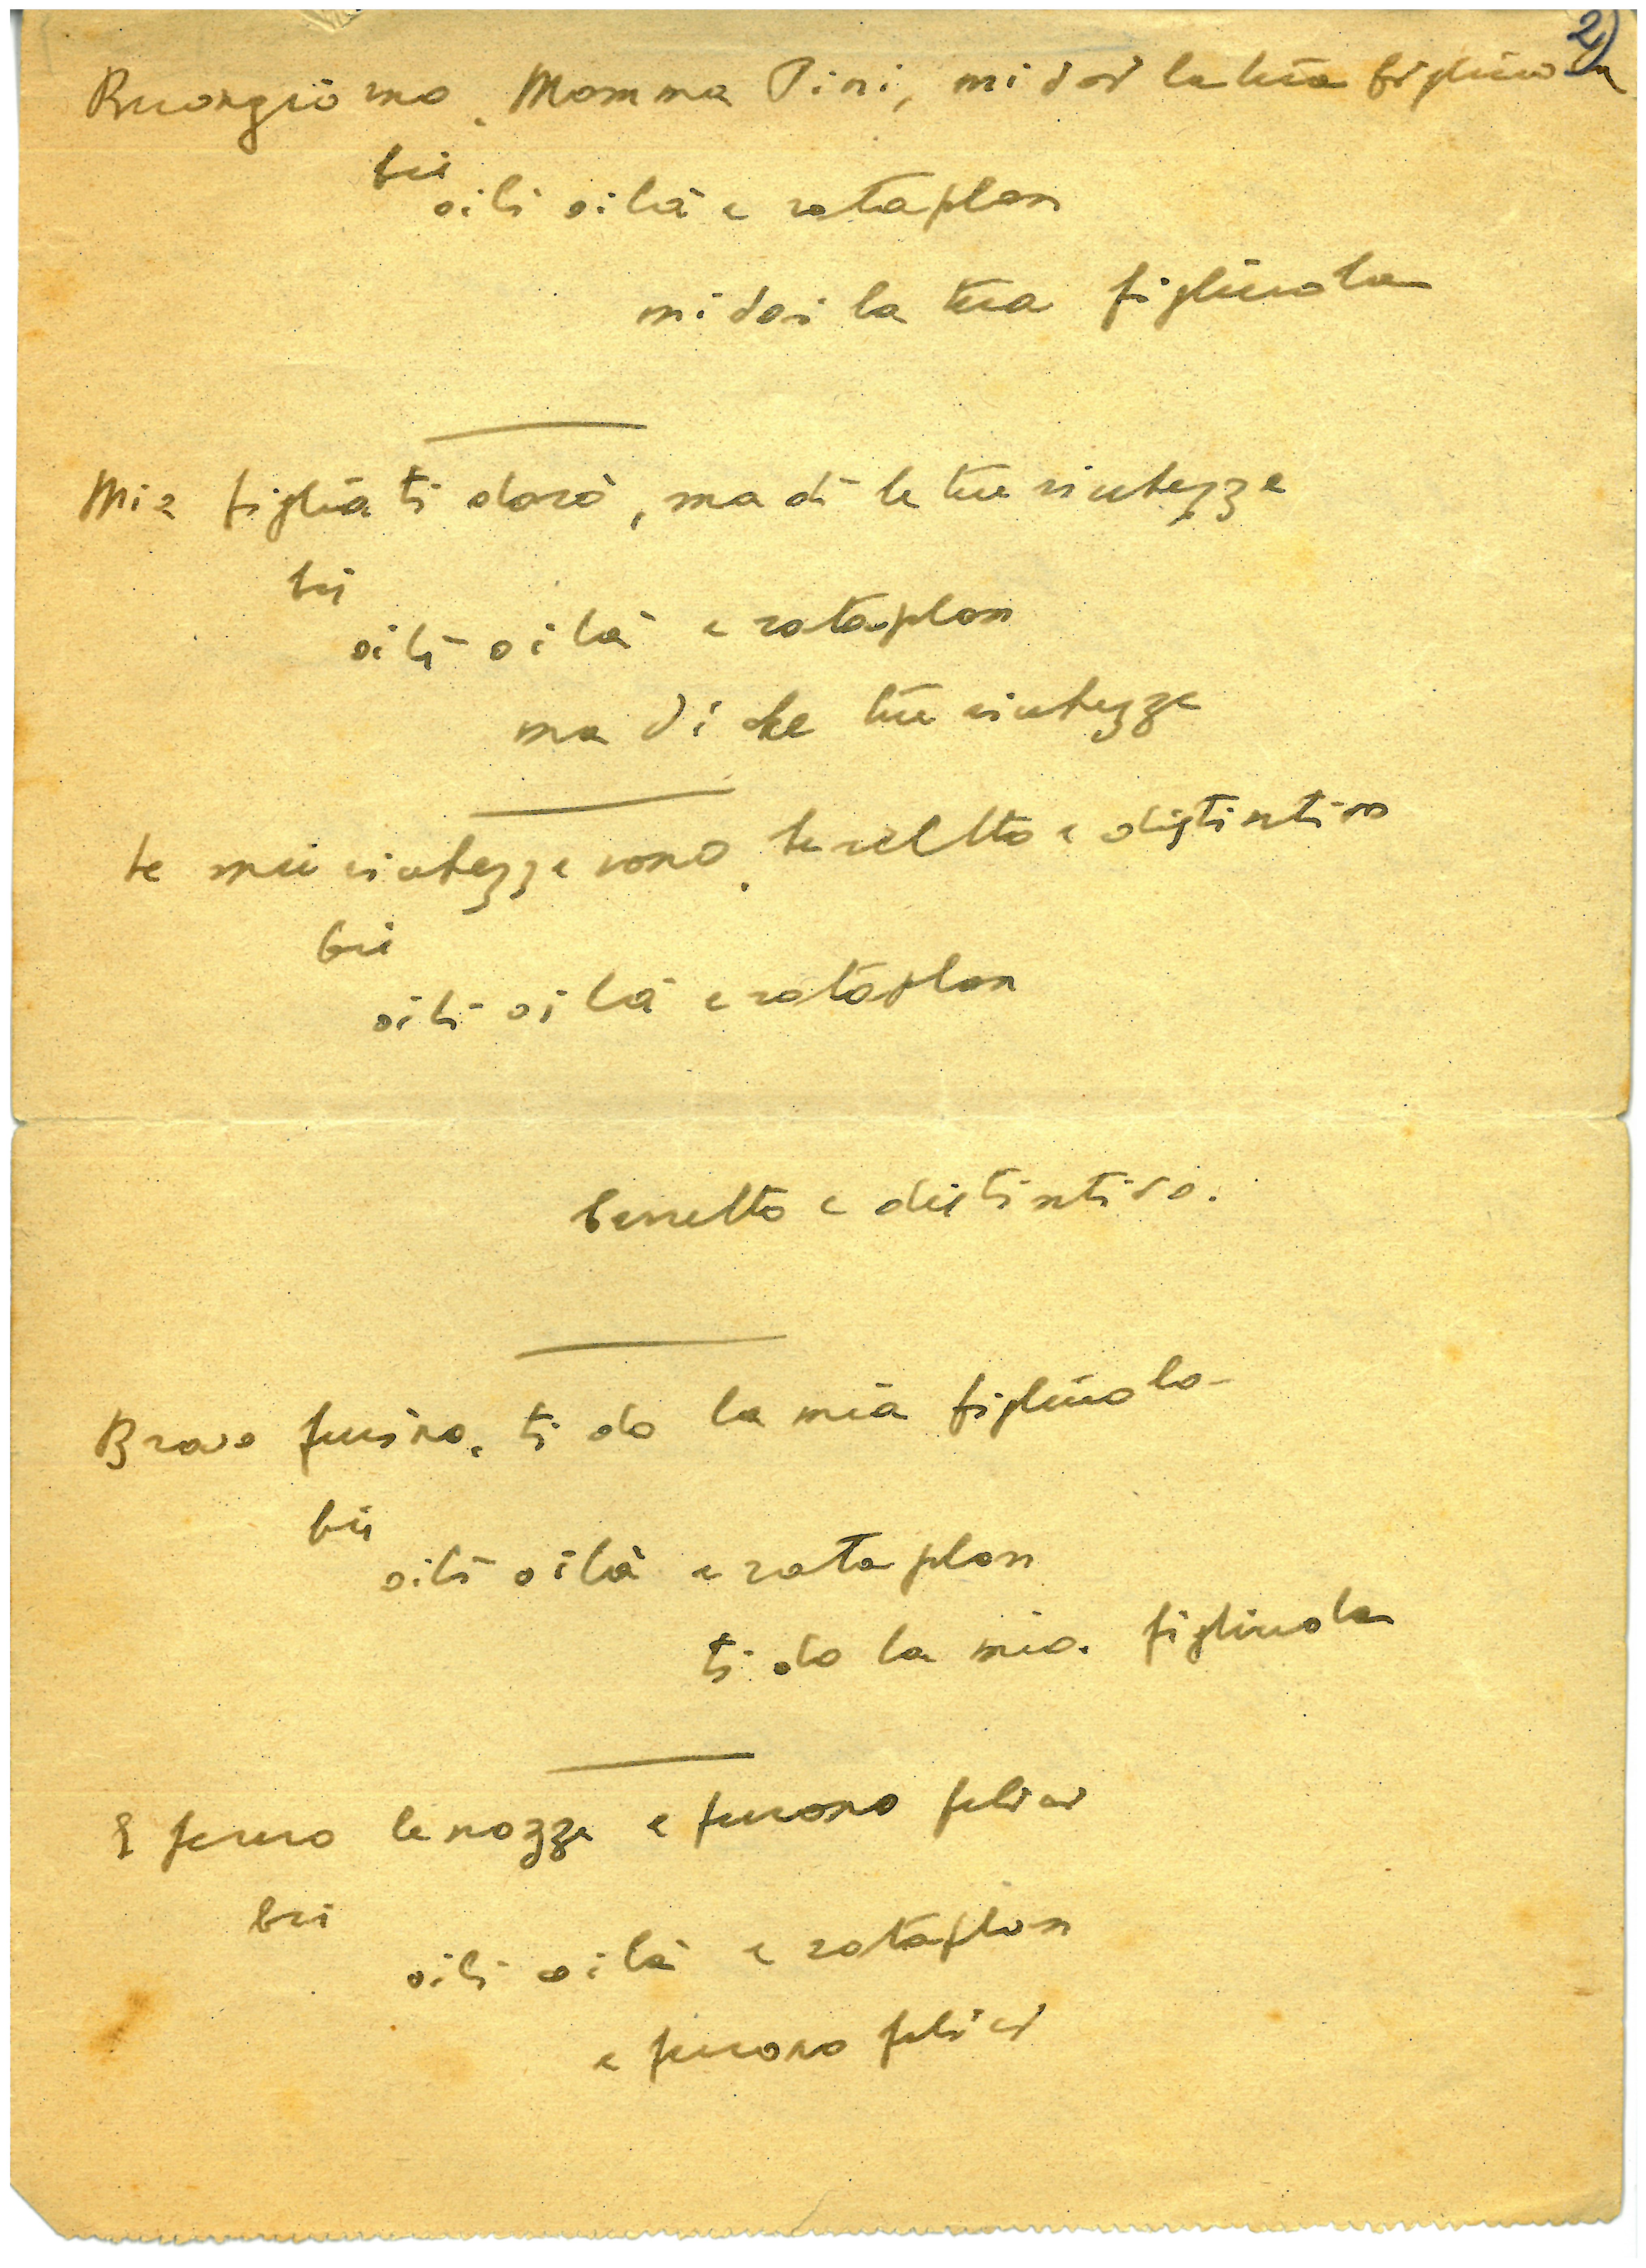 2)
Buongiorno, Momma Pini, mi dai la tua figliuola
bis
oilì oilà e rataplan
mi dai la tua figliuola
Mia figlia ti darò, ma dì le tue ricchezze
bis
oilì oilà e rataplan
ma dì le tue ricchezze
Le mie ricchezze sono, berretto e distintivo
bis
oilì oilà e rataplan
berretto e distintivo.
Bravo fucino, ti do la mia figliuola
bis
oilì oilà e rataplan
ti do la mia figliuola
E furno le nozze e furono felici
bis
oilì oilà e rataplan
e furono felici